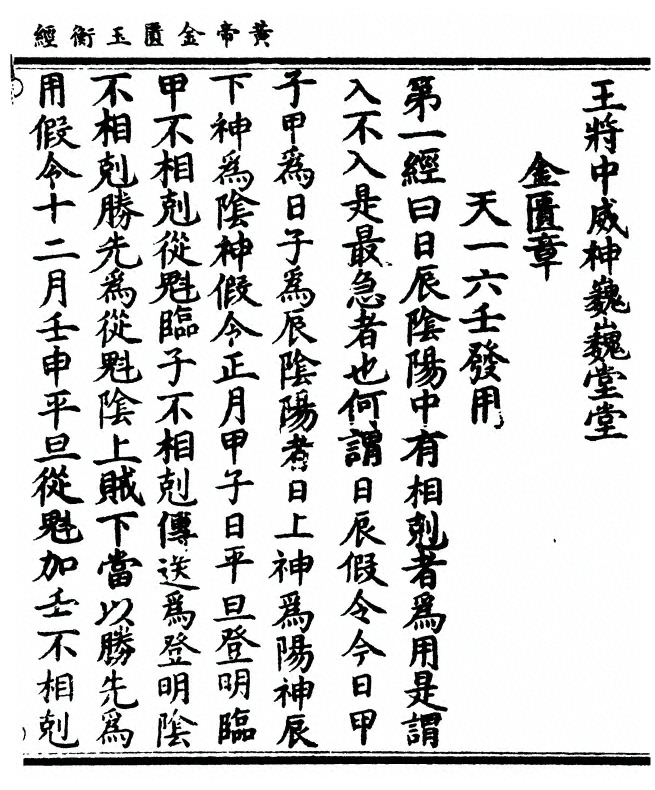 黃帝金匱玉衡經
王將中威神巍巍堂堂
金匱章
天一六壬發用
第一經曰日辰陰陽中有相剋者為用是謂
入不入是最急者也何謂日辰假令今日甲
子甲為日子為辰陰陽者日上神為陽神辰
下神為陰神假令正月甲子日平旦登明臨
甲不相剋從魁臨子不相剋傳送為登明陰
不相剋勝先為從魁陰上賊下當以勝先為
用假令十二月壬申平旦從魁加壬不相剋